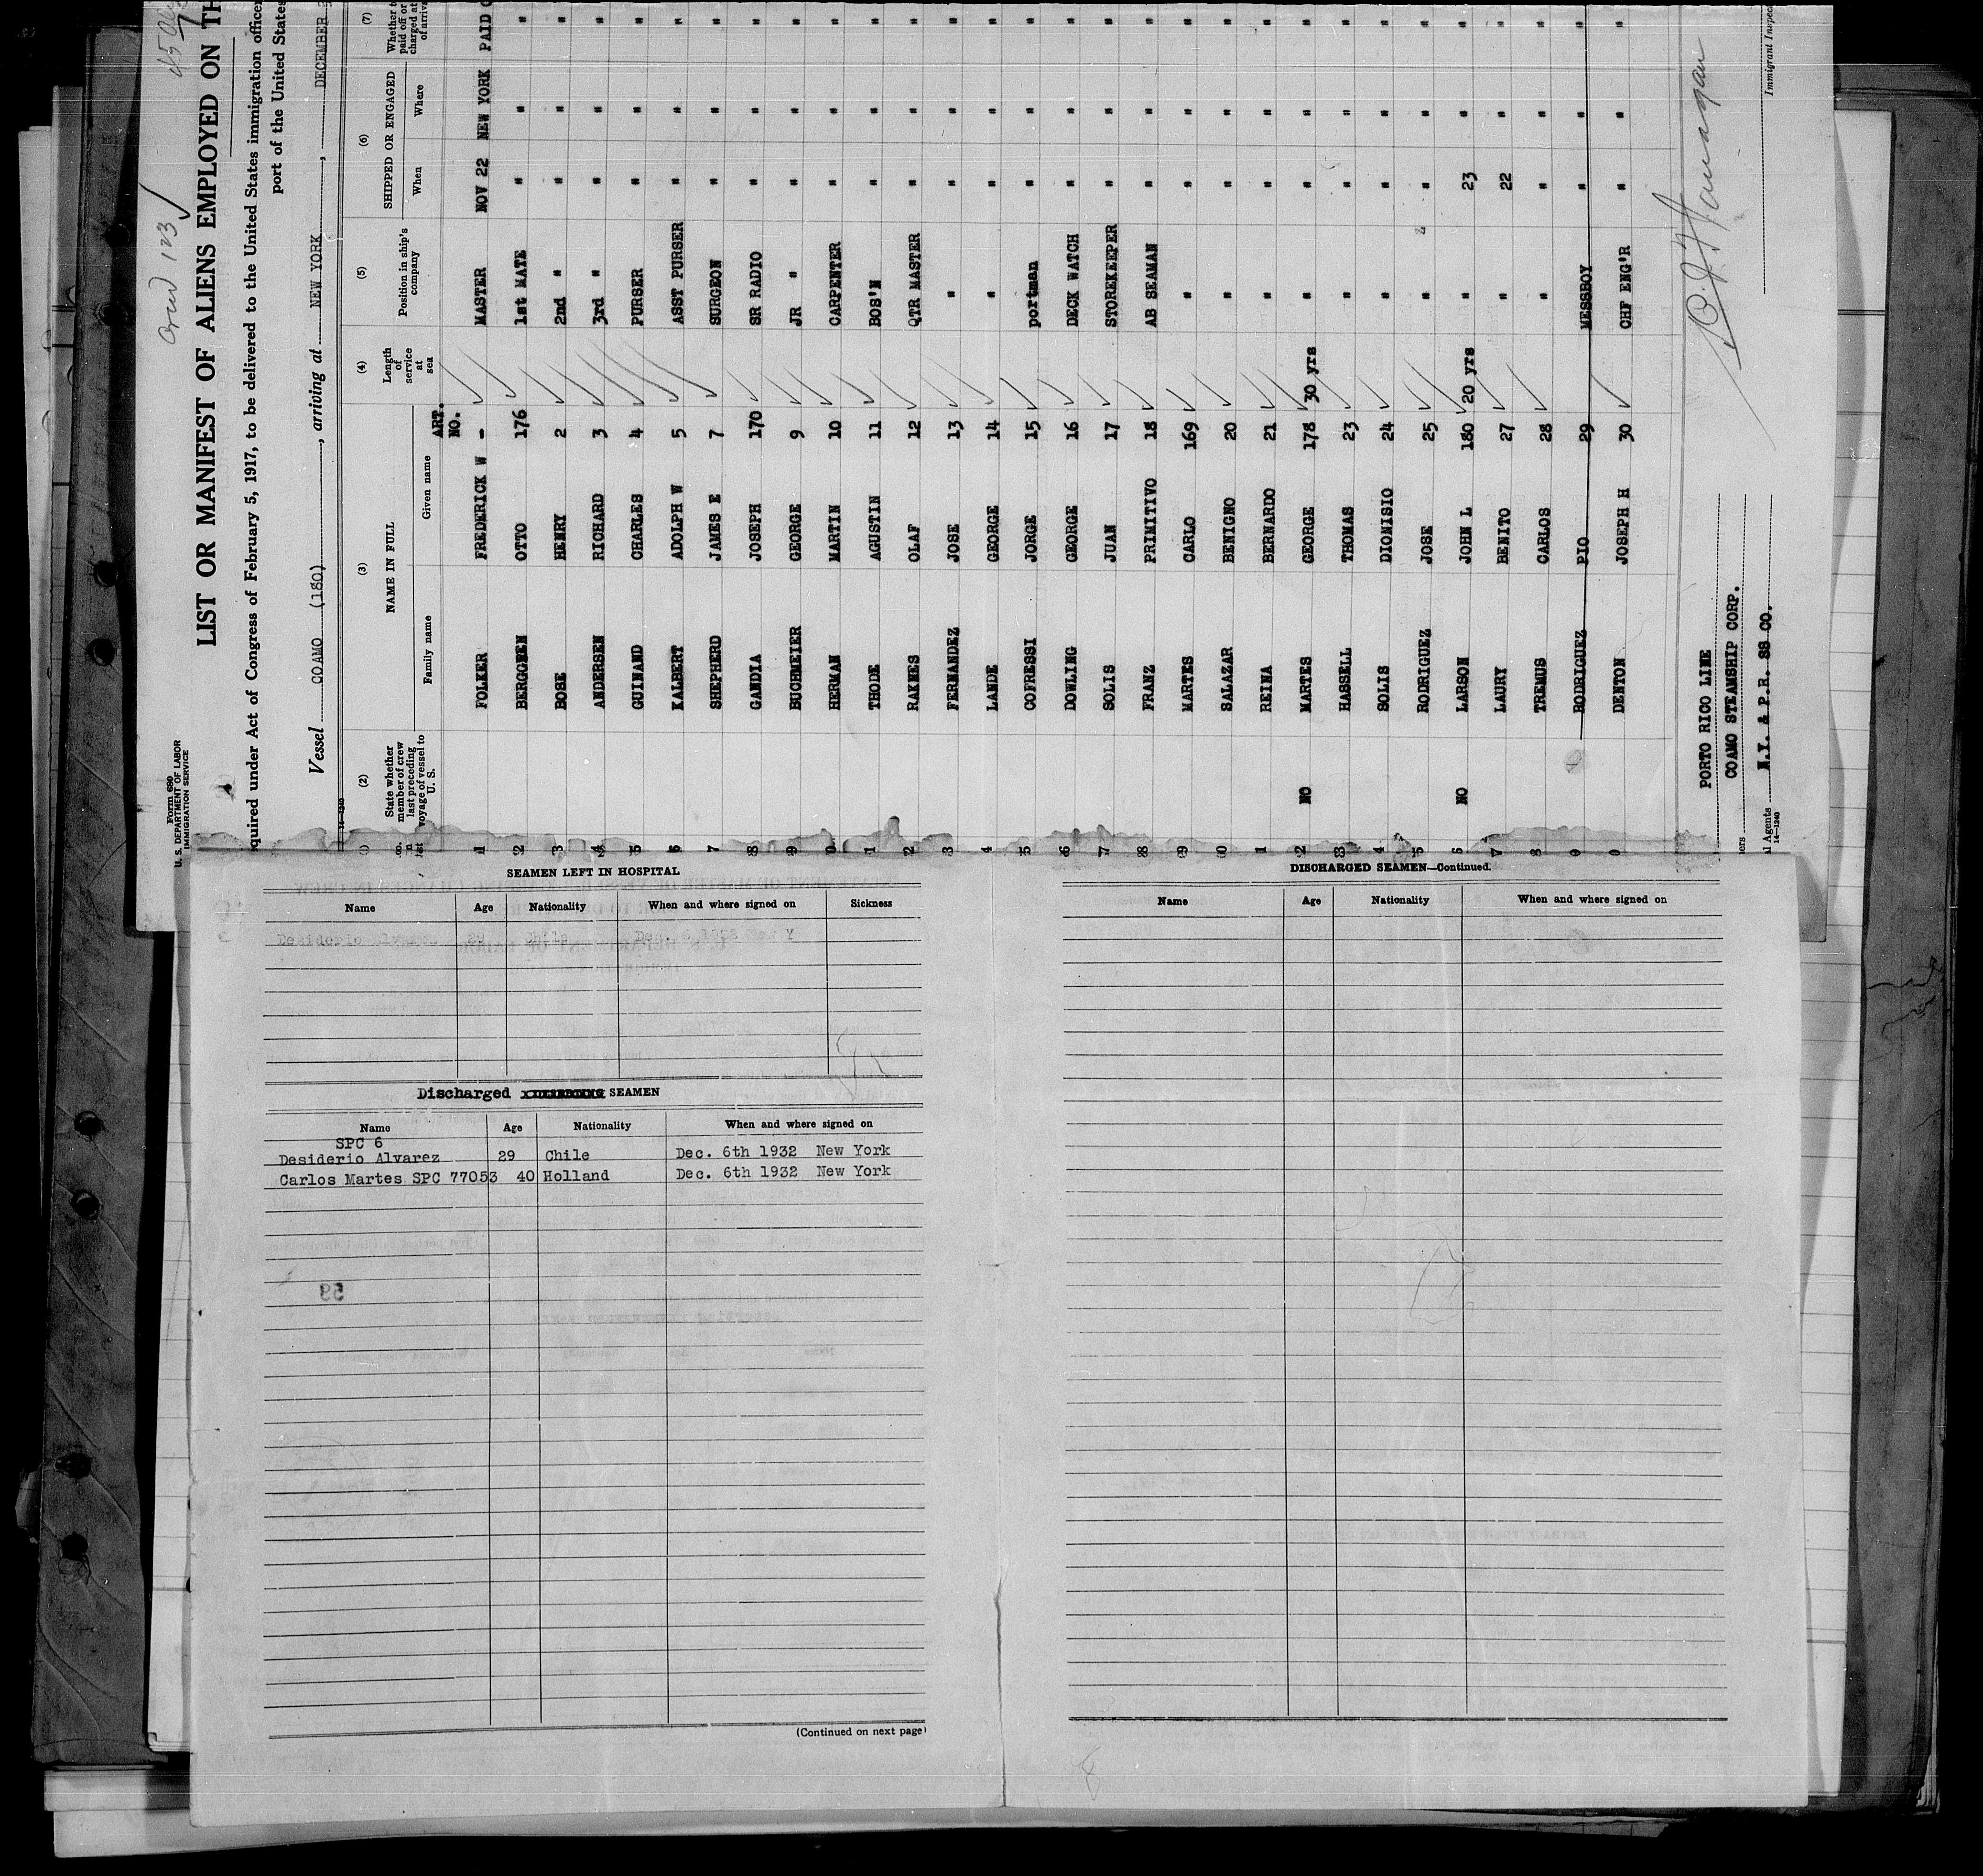 Form 680
U. S. DEPARTMENT OF LABOR
IMMIGRATION SERVICE
LIST OR MANIFEST OF ALIENS EMPLOYED ON TH
quired under Act of Congress of February 5, 1917, to be delivered to the United States immigration officer
port of the United States
Vessel COAMO (180), arriving at NEW YORK, DECEMBER
(2) (3) (4) (5) (6) (7)
State whether member of crew last preceding voyage of vessel to U. S.
NAME IN FULL
Family name Given name
ART. NO.
Length of service at sea
Position in ship's company
SHIPPED OR ENGAGED
When Where
FOLKER FREDERICK W - MASTER NOV 22 NEW YORK PAID
BERGGREN OTTO 176 1st MATE " " "
BOSE HENRY 2 2nd " " " "
ANDERSEN RICHARD 3 3rd " " " "
GUINAND CHARLES 4 PURSER " " "
KALBERT ADOLPH W 5 ASST PURSER " " "
SHEPHERD JAMES E 7 SURGEON " " "
GANDIA JOSEPH 170 SR RADIO " " "
BUCHMEIER GEORGE 9 JR " " " "
HERMAN MARTIN 10 CARPENTER " " "
THODE AGUSTIN 11 BOS'N " " "
RAKNES OLAF 12 QTR MASTER " " "
FERNANDEZ JOSE 13 " " " "
LANDE GEORGE 14 " " " "
COFRESSI JORGE 15 portman " " "
DOWLING GEORGE 16 DECK WATCH " " "
SOLIS JUAN 17 STOREKEEPER " " "
FRANZ PRIMITIVO 18 AB SEAMAN " " "
MARTES CARLO 169 " " " "
SALAZAR BENIGNO 20 " " " "
REINA BERNARDO 21 " " " "
NO MARTES GEORGE 178 30 yrs " " " "
HASSELL THOMAS 23 " " " "
SOLIS DIONISIO 24 " " " "
RODRIGUEZ JOSE 25 " " " "
NO LARSON JOHN L 180 20 yrs " 23 " "
LAURY BENITO 27 " 22 " "
TREMUS CARLOS 28 " " " "
RODRIGUEZ PIO 29 MESSBOY " " "
DENTON JOSEPH H 30 CHF ENG'R " " "
PORTO RICO LINE
COAMO STEAMSHIP CORP.
Agents N.Y. & P.R. SS CO.
14—1240
Immigrant Inspec
SEAMEN LEFT IN HOSPITAL
Name Age Nationality When and where signed on Sickness
Desiderio Alvarez 29 Chile
Discharged SEAMEN
Name Age Nationality When and where signed on
SPC 6
Desiderio Alvarez 29 Chile Dec. 6th 1932 New York
Carlos Martes SPC 77053 40 Holland Dec. 6th 1932 New York
59
(Continued on next page)
DISCHARGED SEAMEN—Continued.
Name Age Nationality When and where signed on